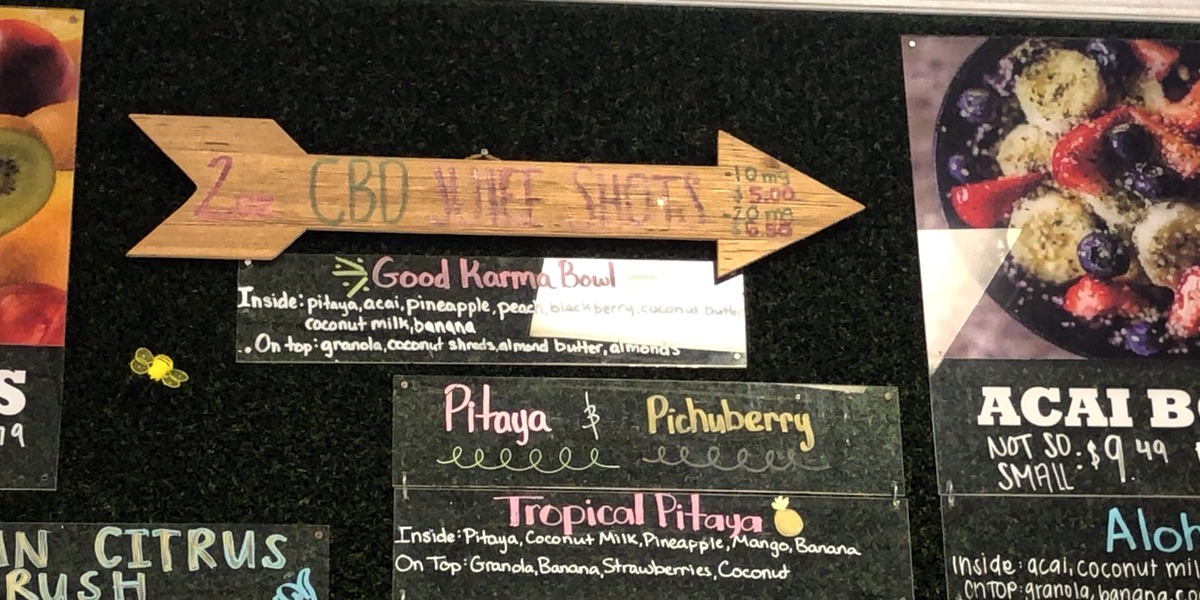 2oz CBD JUICE SHOTS
-10 mg
$5.00
-20 mg
$6.50
Good Karma Bowl
Inside: pitaya, acai, pineapple, peach, blackberry, coconut butter
coconut milk, banana
On top: granola, coconut shreds, almond butter, almonds
Pitaya & Pichuberry
Tropical Pitaya
Inside: Pitaya, Coconut Milk, Pineapple, Mango, Banana
On Top: Granola, Banana, Strawberries, Coconut
S
19
N CITRUS
RUSH
ACAI B
NOT SO
SMALL: $9.49
Aloh
Inside: acai, coconut mil
ON TOP: granola, banana, co